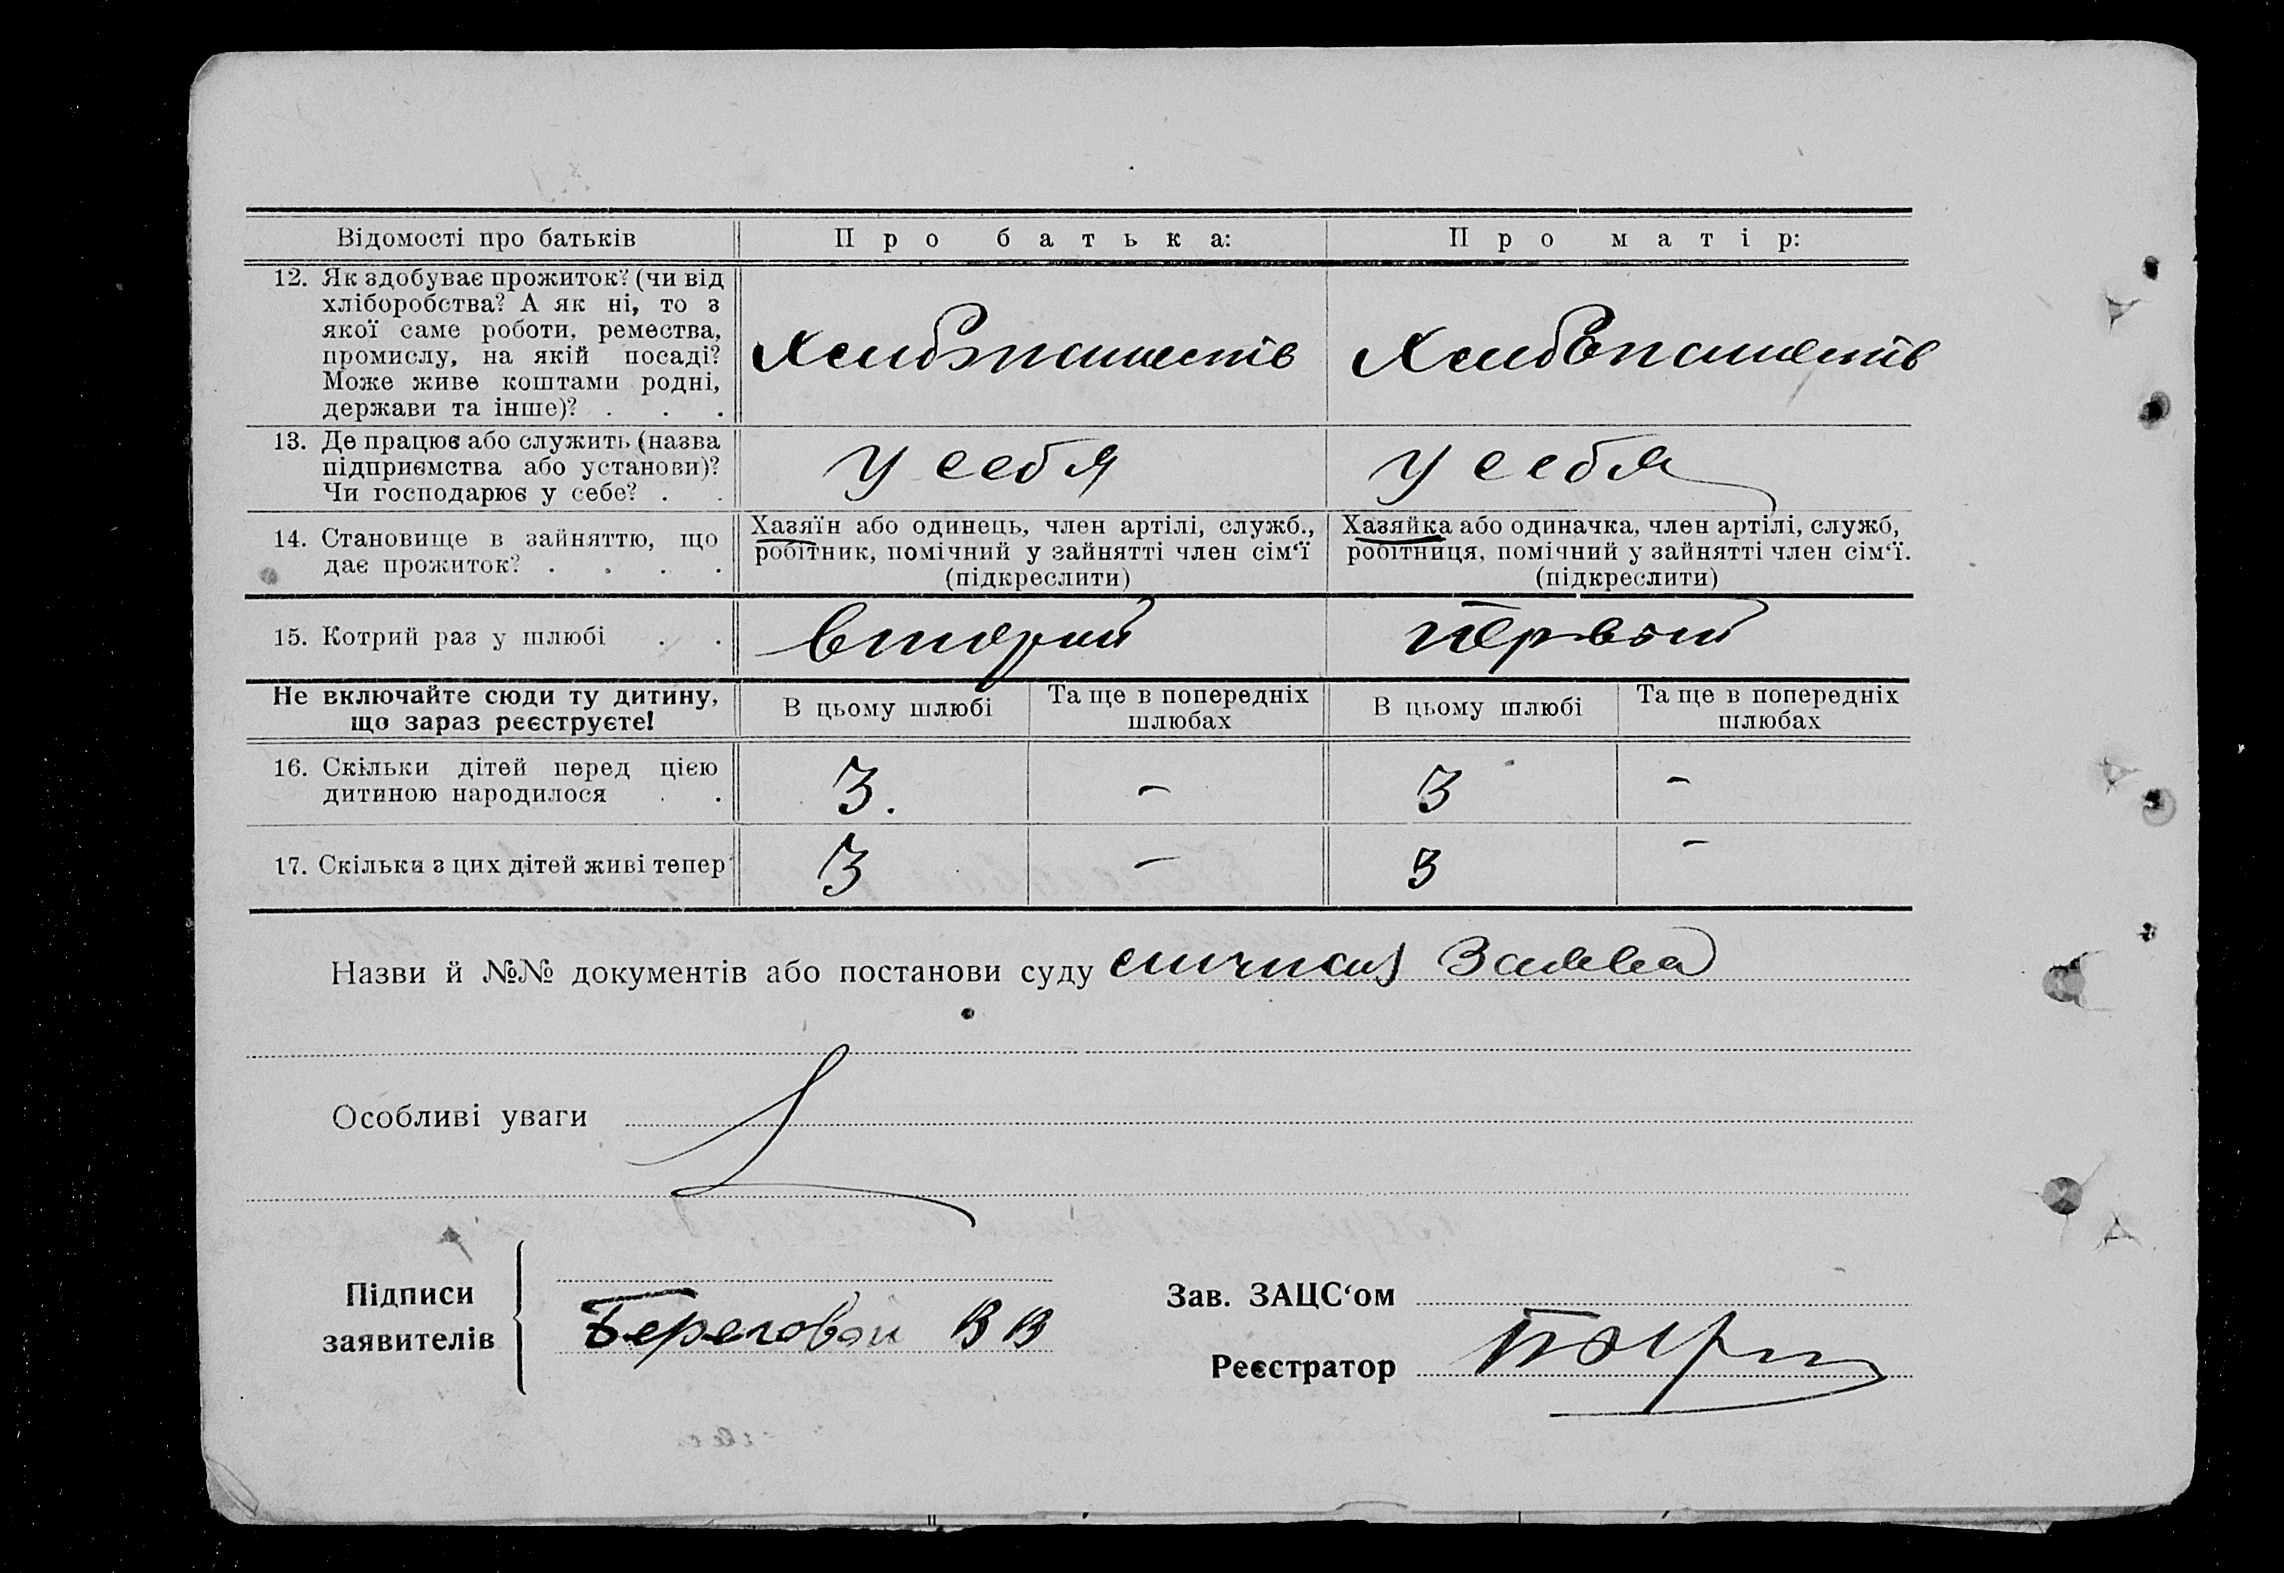 Відомості про батьків Про батька: Про матір:
12. Як здобуває прожиток? (чи від
хліборобства? А як ні, то з
якої саме роботи, ремества,
промислу, на якій посаді?
Може живе коштами родні,
держави та інше)? . . .
Хлибопашеств Хлибопашеств
13. Де працює або служить (назва
підприємства або установи)?
Чи господарює у себе? . .
у себя у себя
14. Становище в зайняттю, що
дає прожиток? . . . .
Хазяїн або одинець, член артілі, служб.,
робітник, помічний у зайнятті член сім‘ї
(підкреслити)
Хазяйка або одиначка, член артілі, служб,
робітниця, помічний у зайнятті член сім‘ї.
(підкреслити)
15. Котрий раз у шлюбі . . вторий первой
Не включайте сюди ту дитину,
що зараз реєструєте!
В цьому шлюбі Та ще в попередніх
шлюбах
В цьому шлюбі Та ще в попередніх
шлюбах
16. Скільки дітей перед цією
дитиною народилося . .
3. – 3 –
17. Скільки з цих дітей живі тепер 3 – 3 –
Назви й №№ документів або постанови суду
Особливі уваги
Підписи
заявителів
Береговой В В
Зав. ЗАЦС‘ом
Реєстратор